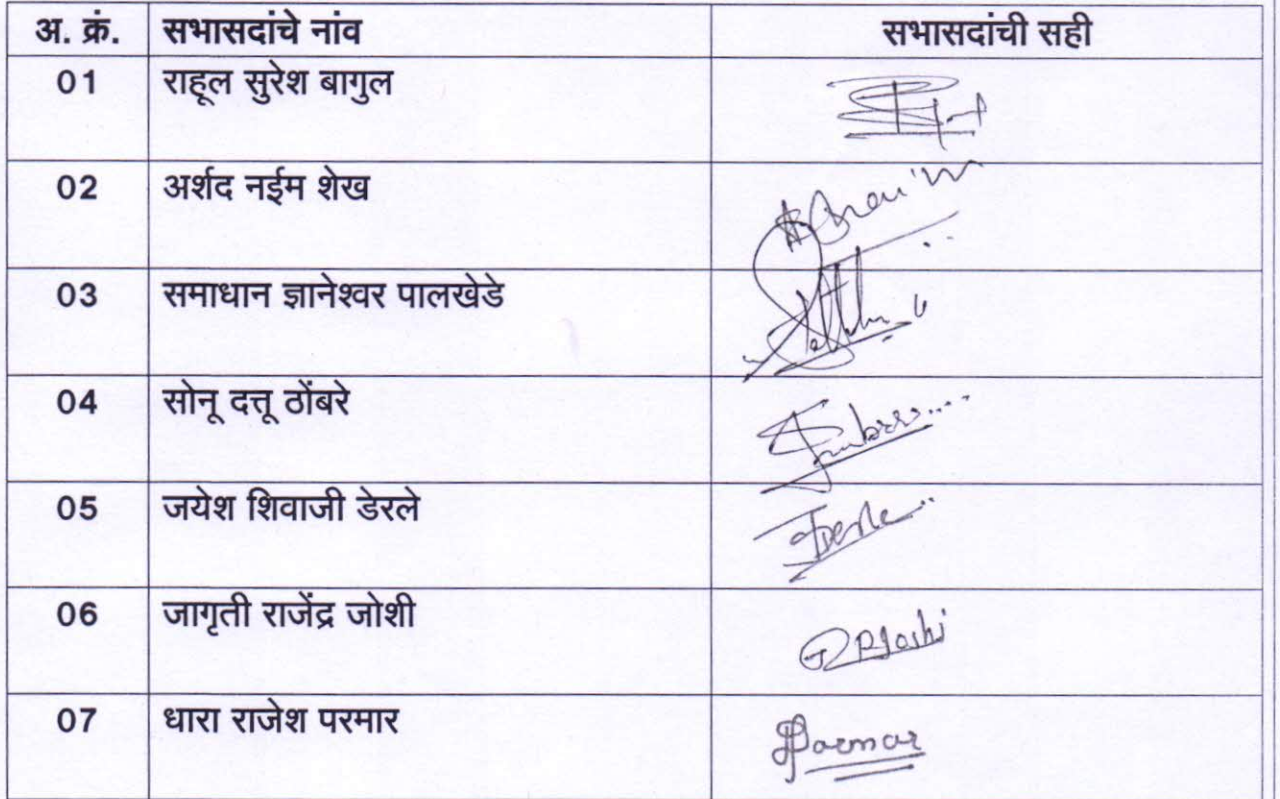 अ. क्रं. सभासदांचे नांव सभासदांची सही
01 राहूल सुरेश बागुल
02 अर्शद नईम शेख
03 समाधान ज्ञानेश्वर पालखेडे
04 सोनू दत्तू ठोंबरे
05 जयेश शिवाजी डेरले
06 जागृती राजेंद्र जोशी
07 धारा राजेश परमार Parmar